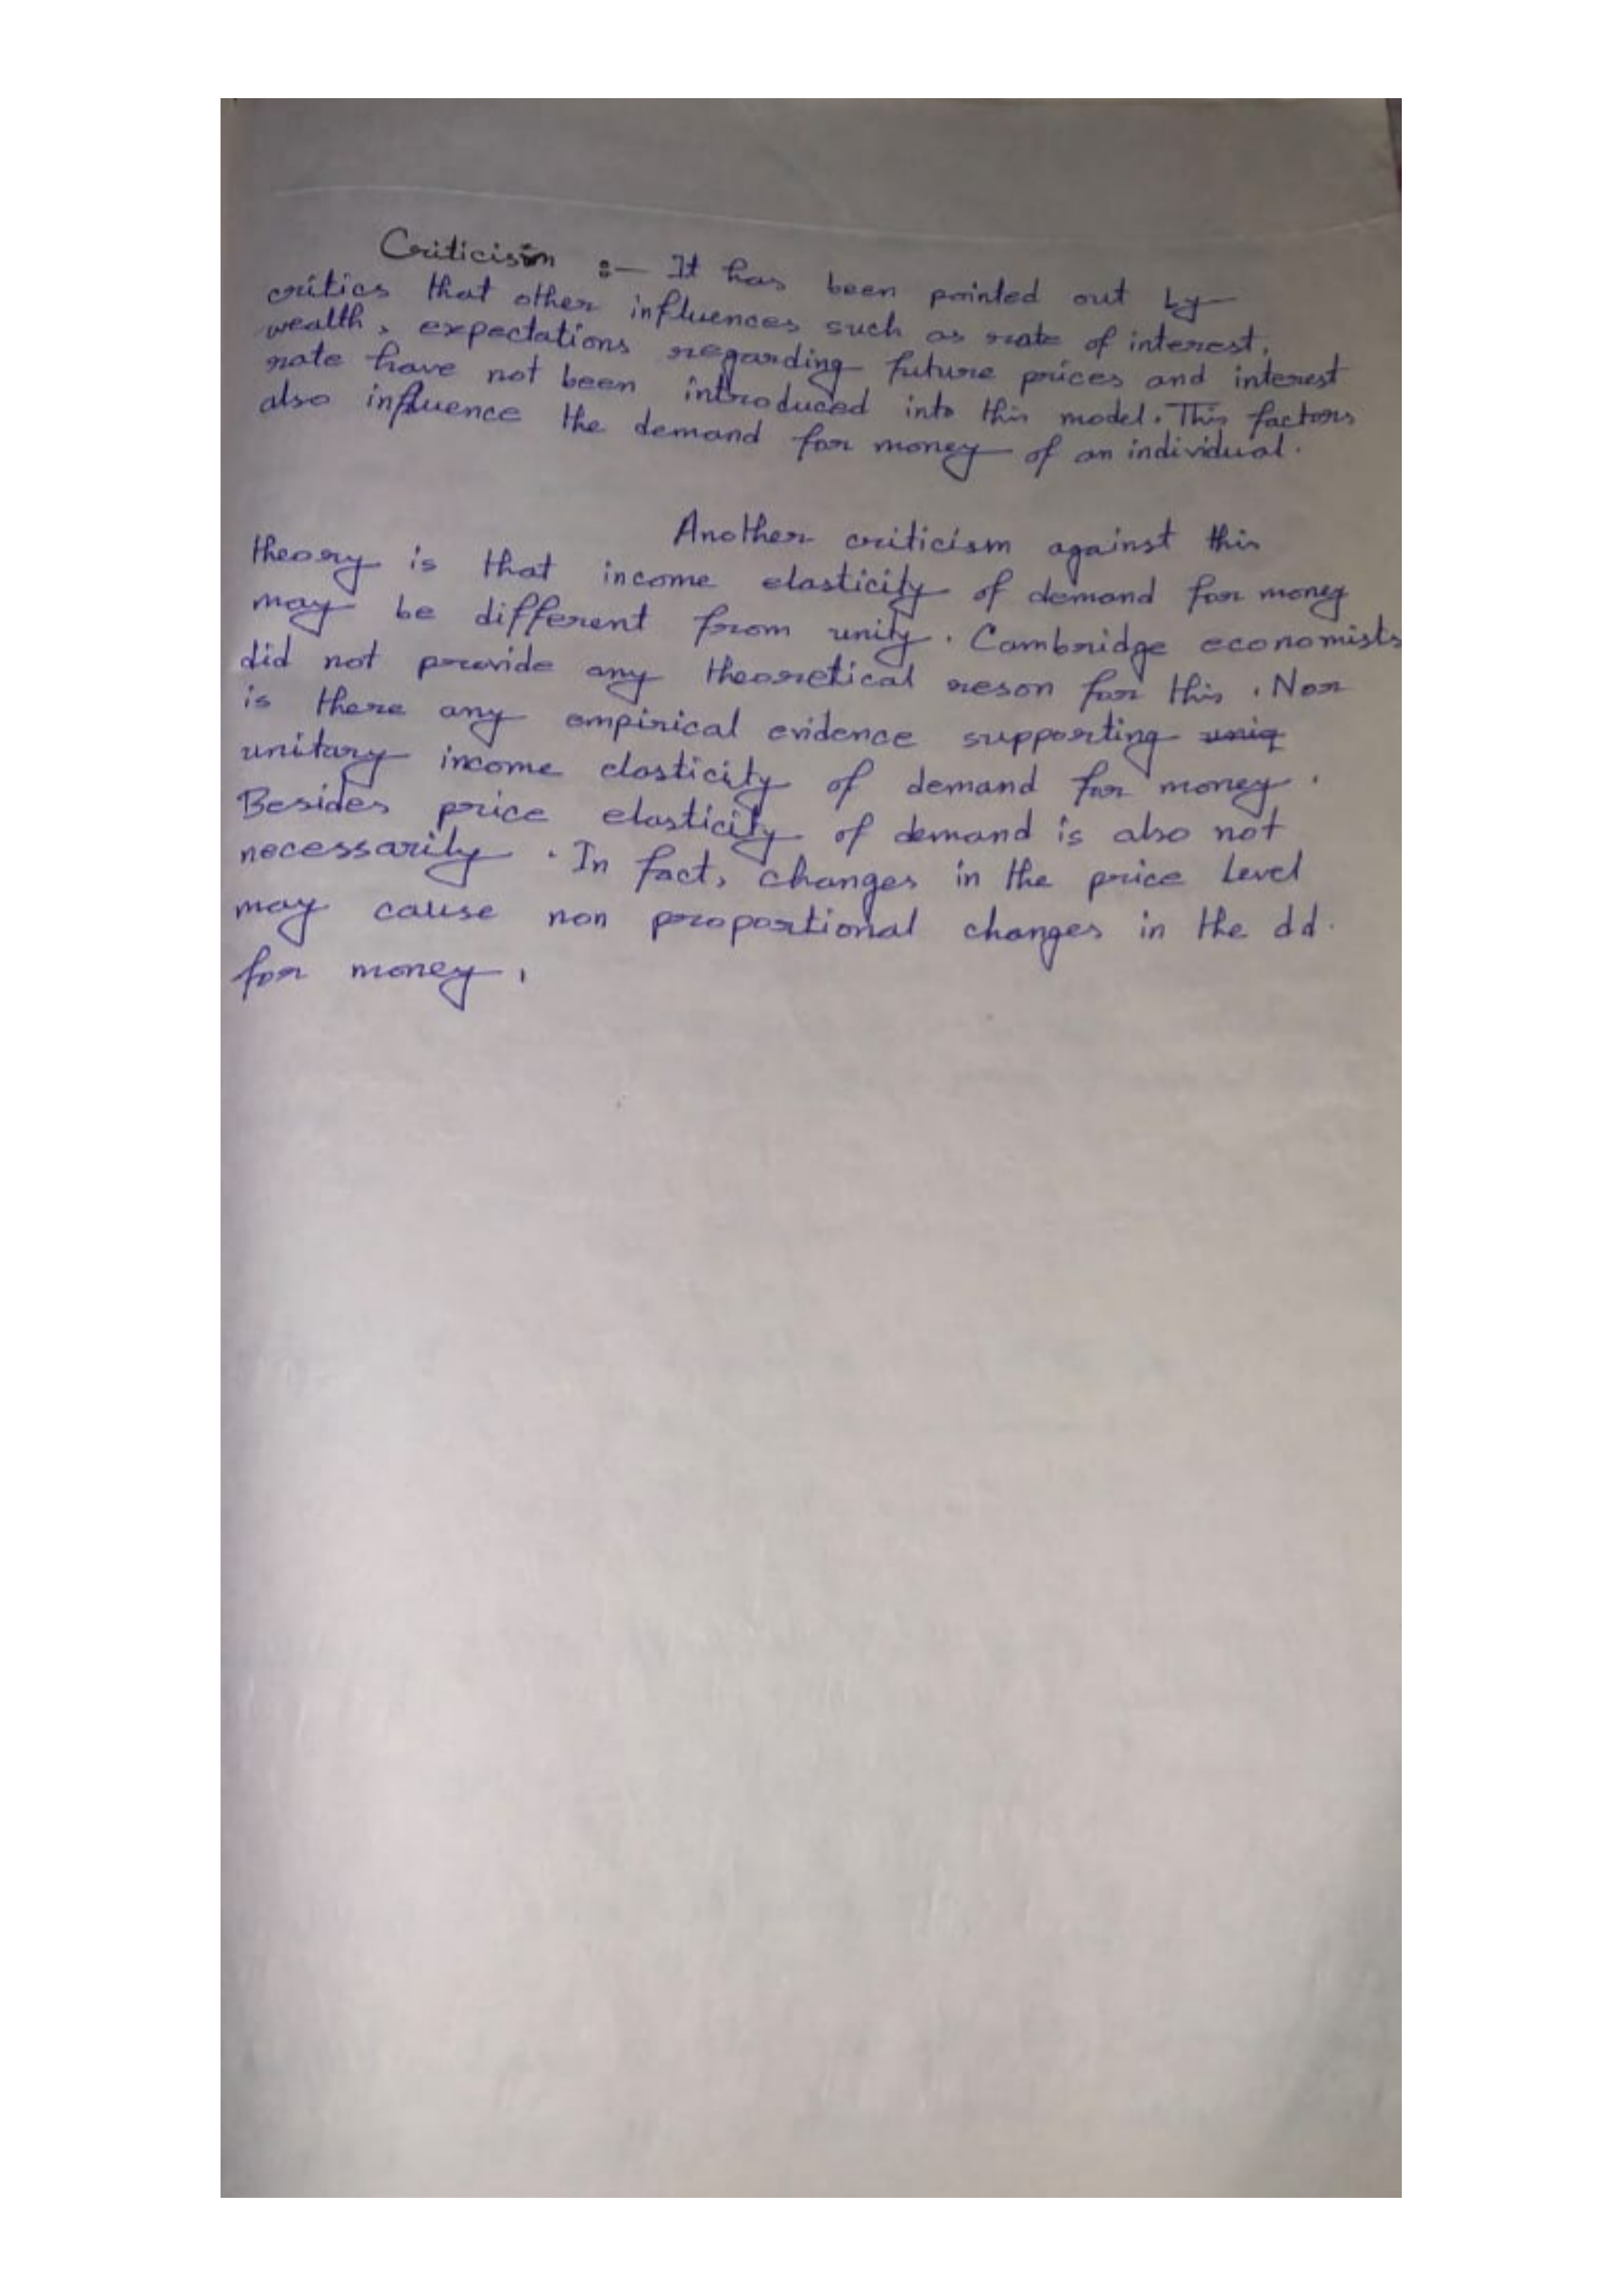 Criticism :— It has been pointed out by
critics that other influences such as rate of interest,
wealth, expectations regarding future prices and interest
rate have not been introduced into this model. This factors
also influence the demand for money of an individual.
Another criticism against this
theory is that income elasticity of demand for money
may be different from unity. Cambridge economists
did not provide any theoretical reson for this. Nor
is there any empirical evidence supporting uniq
unitary income elasticity of demand for money.
Besides price elasticity of demand is also not
necessarily. In fact, changes in the price level
may cause non proportional changes in the dd.
for money.